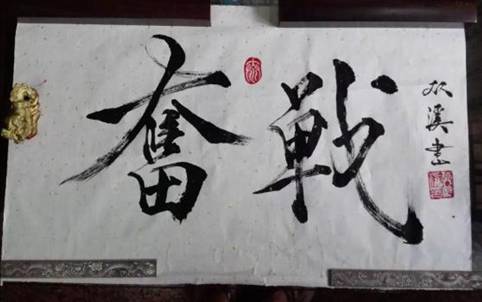 奮戰
松溪書